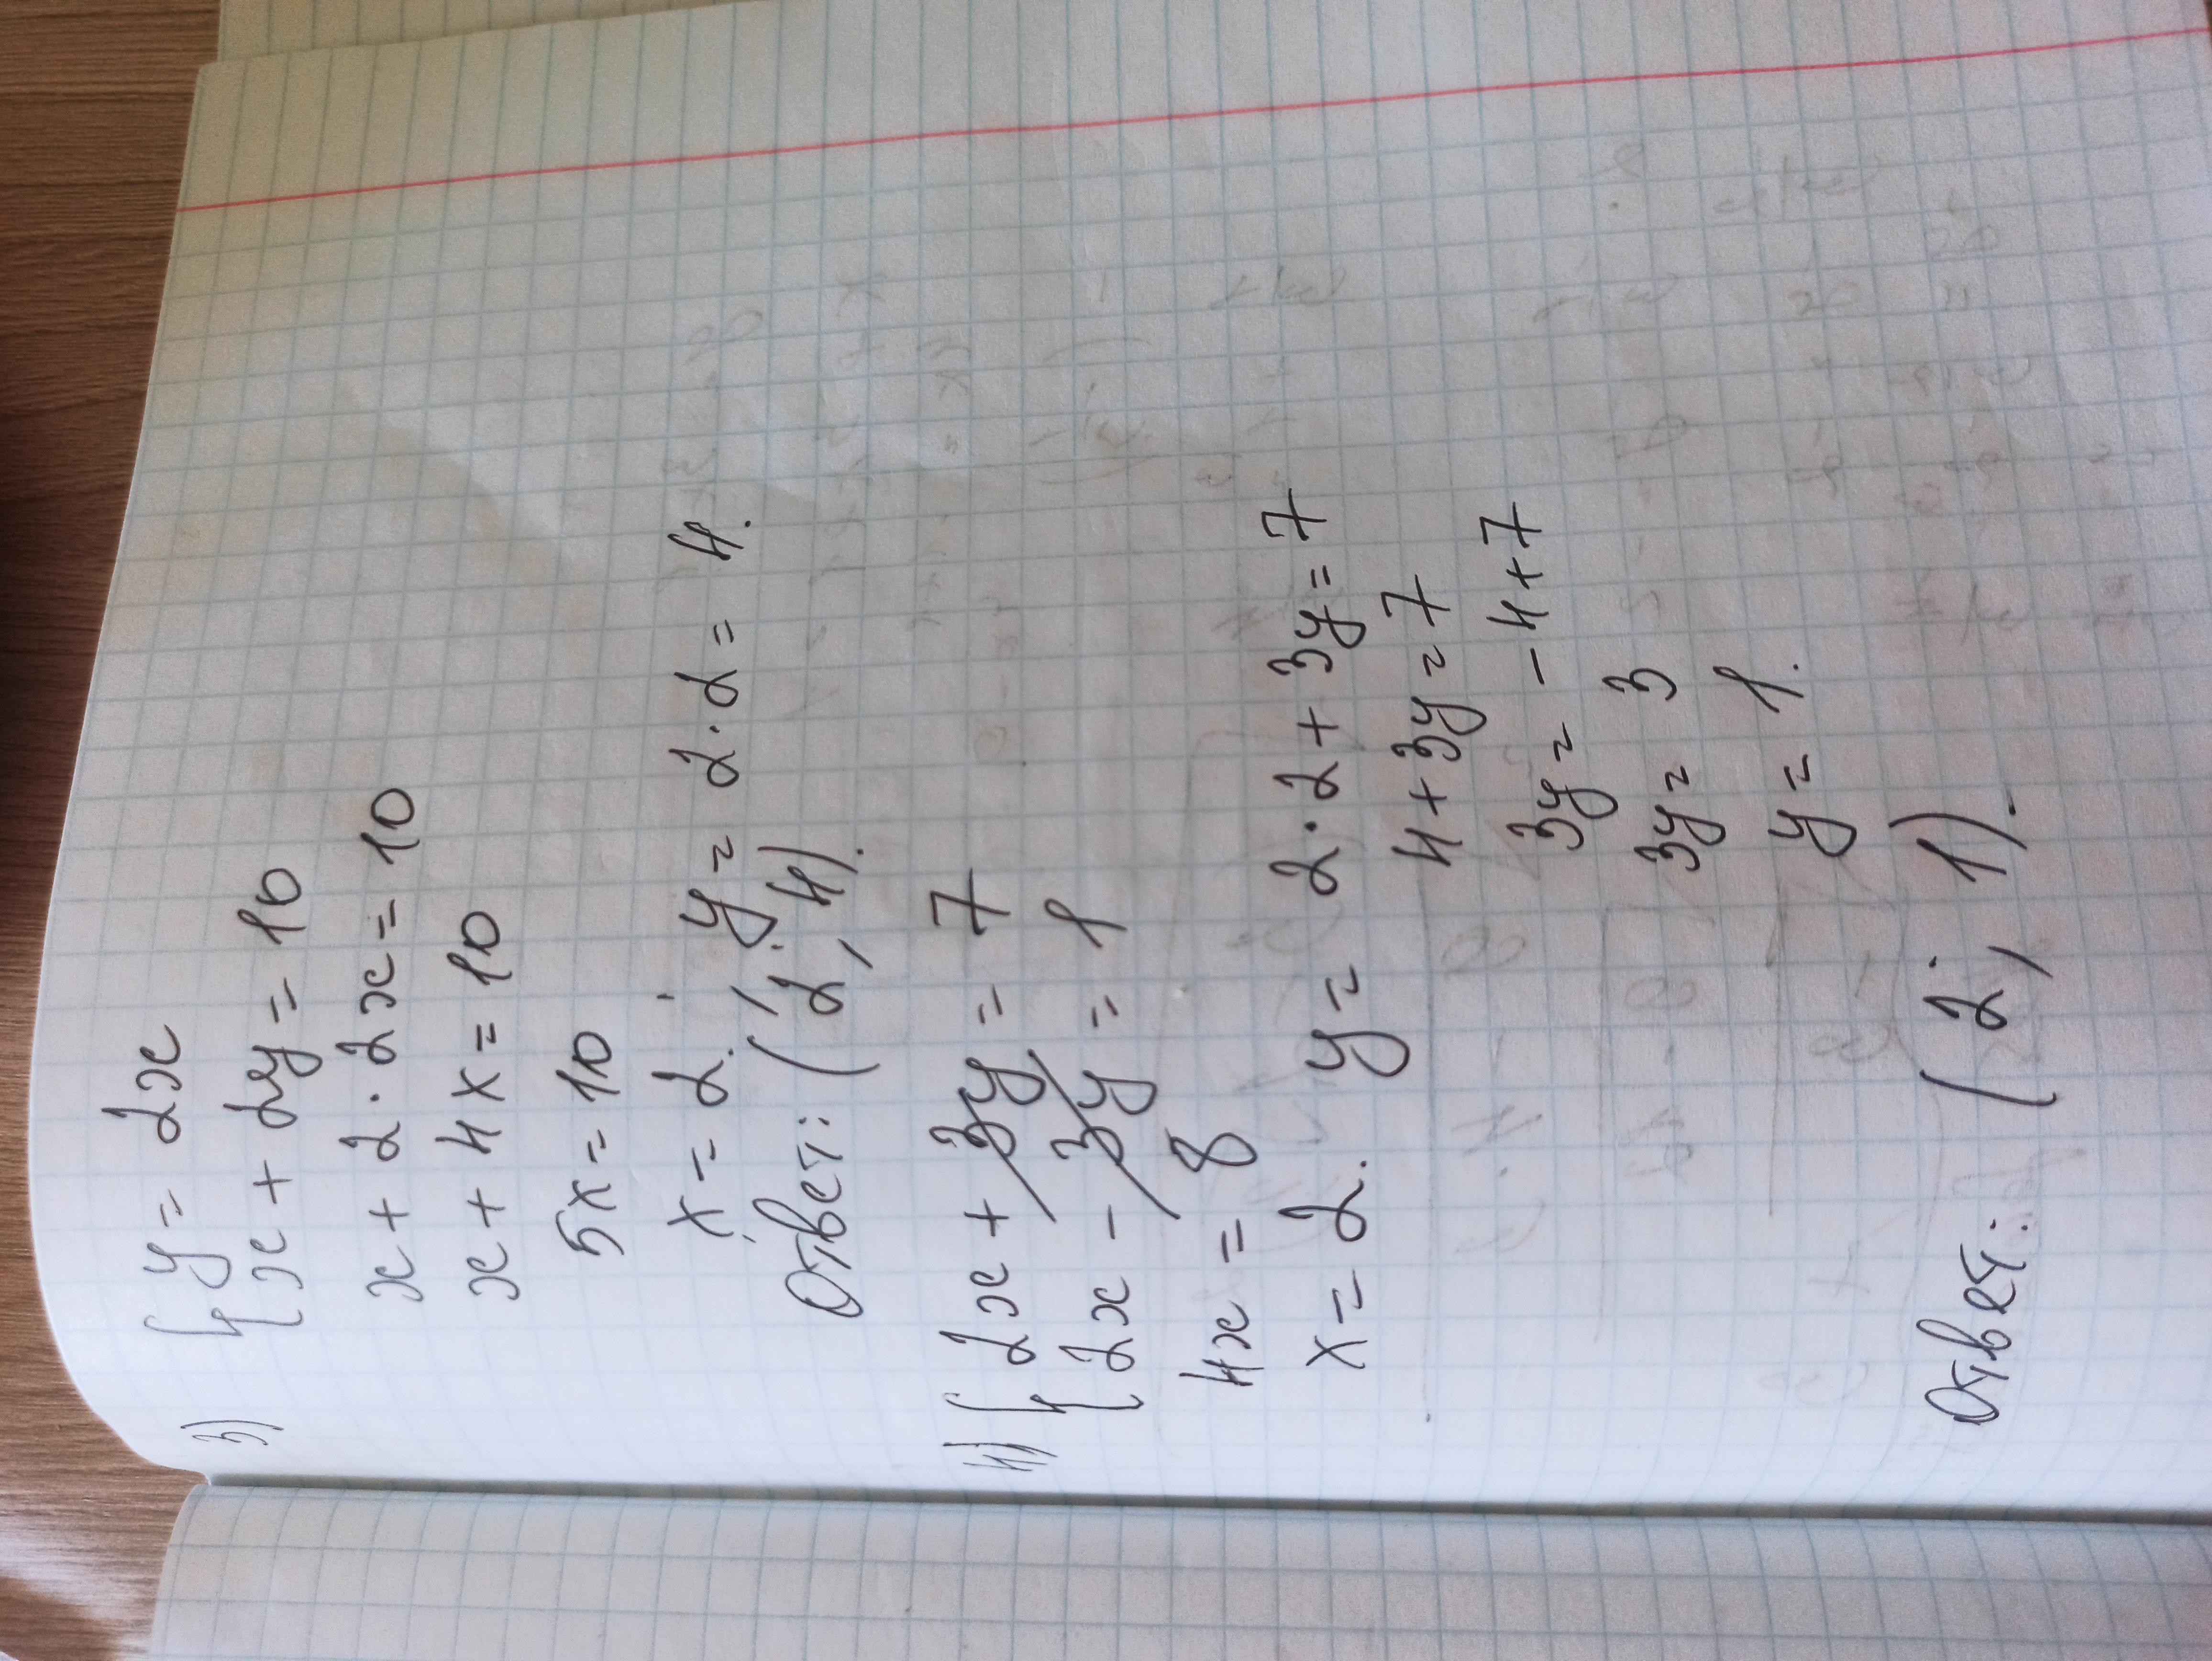 3) { y = 2x
x + 2y = 10
x + 2 · 2x = 10
x + 4x = 10
5x = 10
x = 2. y = 2 · 2 = 4.
Ответ: (2; 4).
4) { 2x + 3y = 7
2x - 3y = 1
4x = 8
x = 2. y = 2 · 2 + 3y = 7
4 + 3y = 7
3y = -4 + 7
3y = 3
y = 1.
Ответ: (2; 1).